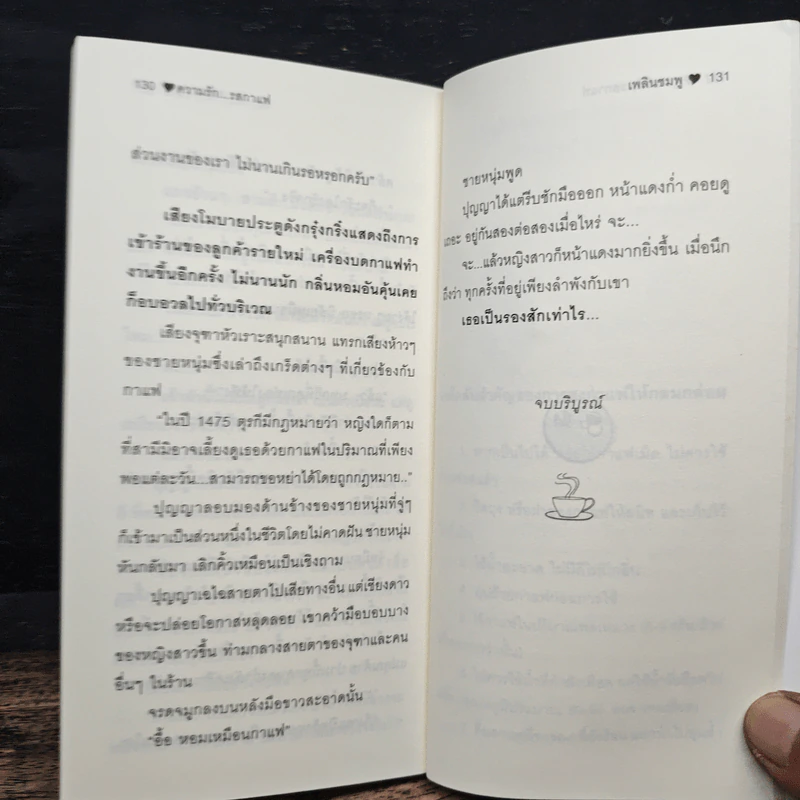 130 ♥ ความรัก...รสกาแฟ
ส่วนงานของเรา ไม่นานเกินรอหรอกครับ"
เสียงโมบายประตูดังกรุ๋งกริ๋งแสดงถึงการ
เข้าร้านของลูกค้ารายใหม่ เครื่องบดกาแฟทำ
งานขึ้นอีกครั้ง ไม่นานนัก กลิ่นหอมอันคุ้นเคย
ก็อบอวลไปทั่วบริเวณ
เสียงจุฑาหัวเราะสนุกสนาน แทรกเสียงห้าวๆ
ของชายหนุ่มซึ่งเล่าถึงเกร็ดต่างๆ ที่เกี่ยวข้องกับ
กาแฟ
"ในปี 1475 ตุรกีมีกฎหมายว่า หญิงใดก็ตาม
ที่สามีมิอาจเลี้ยงดูเธอด้วยกาแฟในปริมาณที่เพียง
พอแต่ละวัน...สามารถขอหย่าได้โดยถูกกฎหมาย.."
ปุญญาลอบมองด้านข้างของชายหนุ่มที่จู่ๆ
ก็เข้ามาเป็นส่วนหนึ่งในชีวิตโดยไม่คาดฝัน ชายหนุ่ม
หันกลับมา เลิกคิ้วเหมือนเป็นเชิงถาม
ปุญญาเฉไฉสายตาไปเสียทางอื่น แต่เชียงดาว
หรือจะปล่อยโอกาสหลุดลอย เขาคว้ามือบอบบาง
ของหญิงสาวขึ้น ท่ามกลางสายตาของจุฑาและคน
อื่นๆ ในร้าน
จรดจมูกลงบนหลังมือขาวสะอาดนั้น
"อื้อ หอมเหมือนกาแฟ"
เพลินชมพู ♥ 131
ชายหนุ่มพูด
ปุญญาได้แต่รีบชักมือออก หน้าแดงก่ำ คอยดู
เถอะ อยู่กันสองต่อสองเมื่อไหร่ จะ...
จะ...แล้วหญิงสาวก็หน้าแดงมากยิ่งขึ้น เมื่อนึก
ถึงว่า ทุกครั้งที่อยู่เพียงลำพังกับเขา
เธอเป็นรองสักเท่าไร...
จบบริบูรณ์